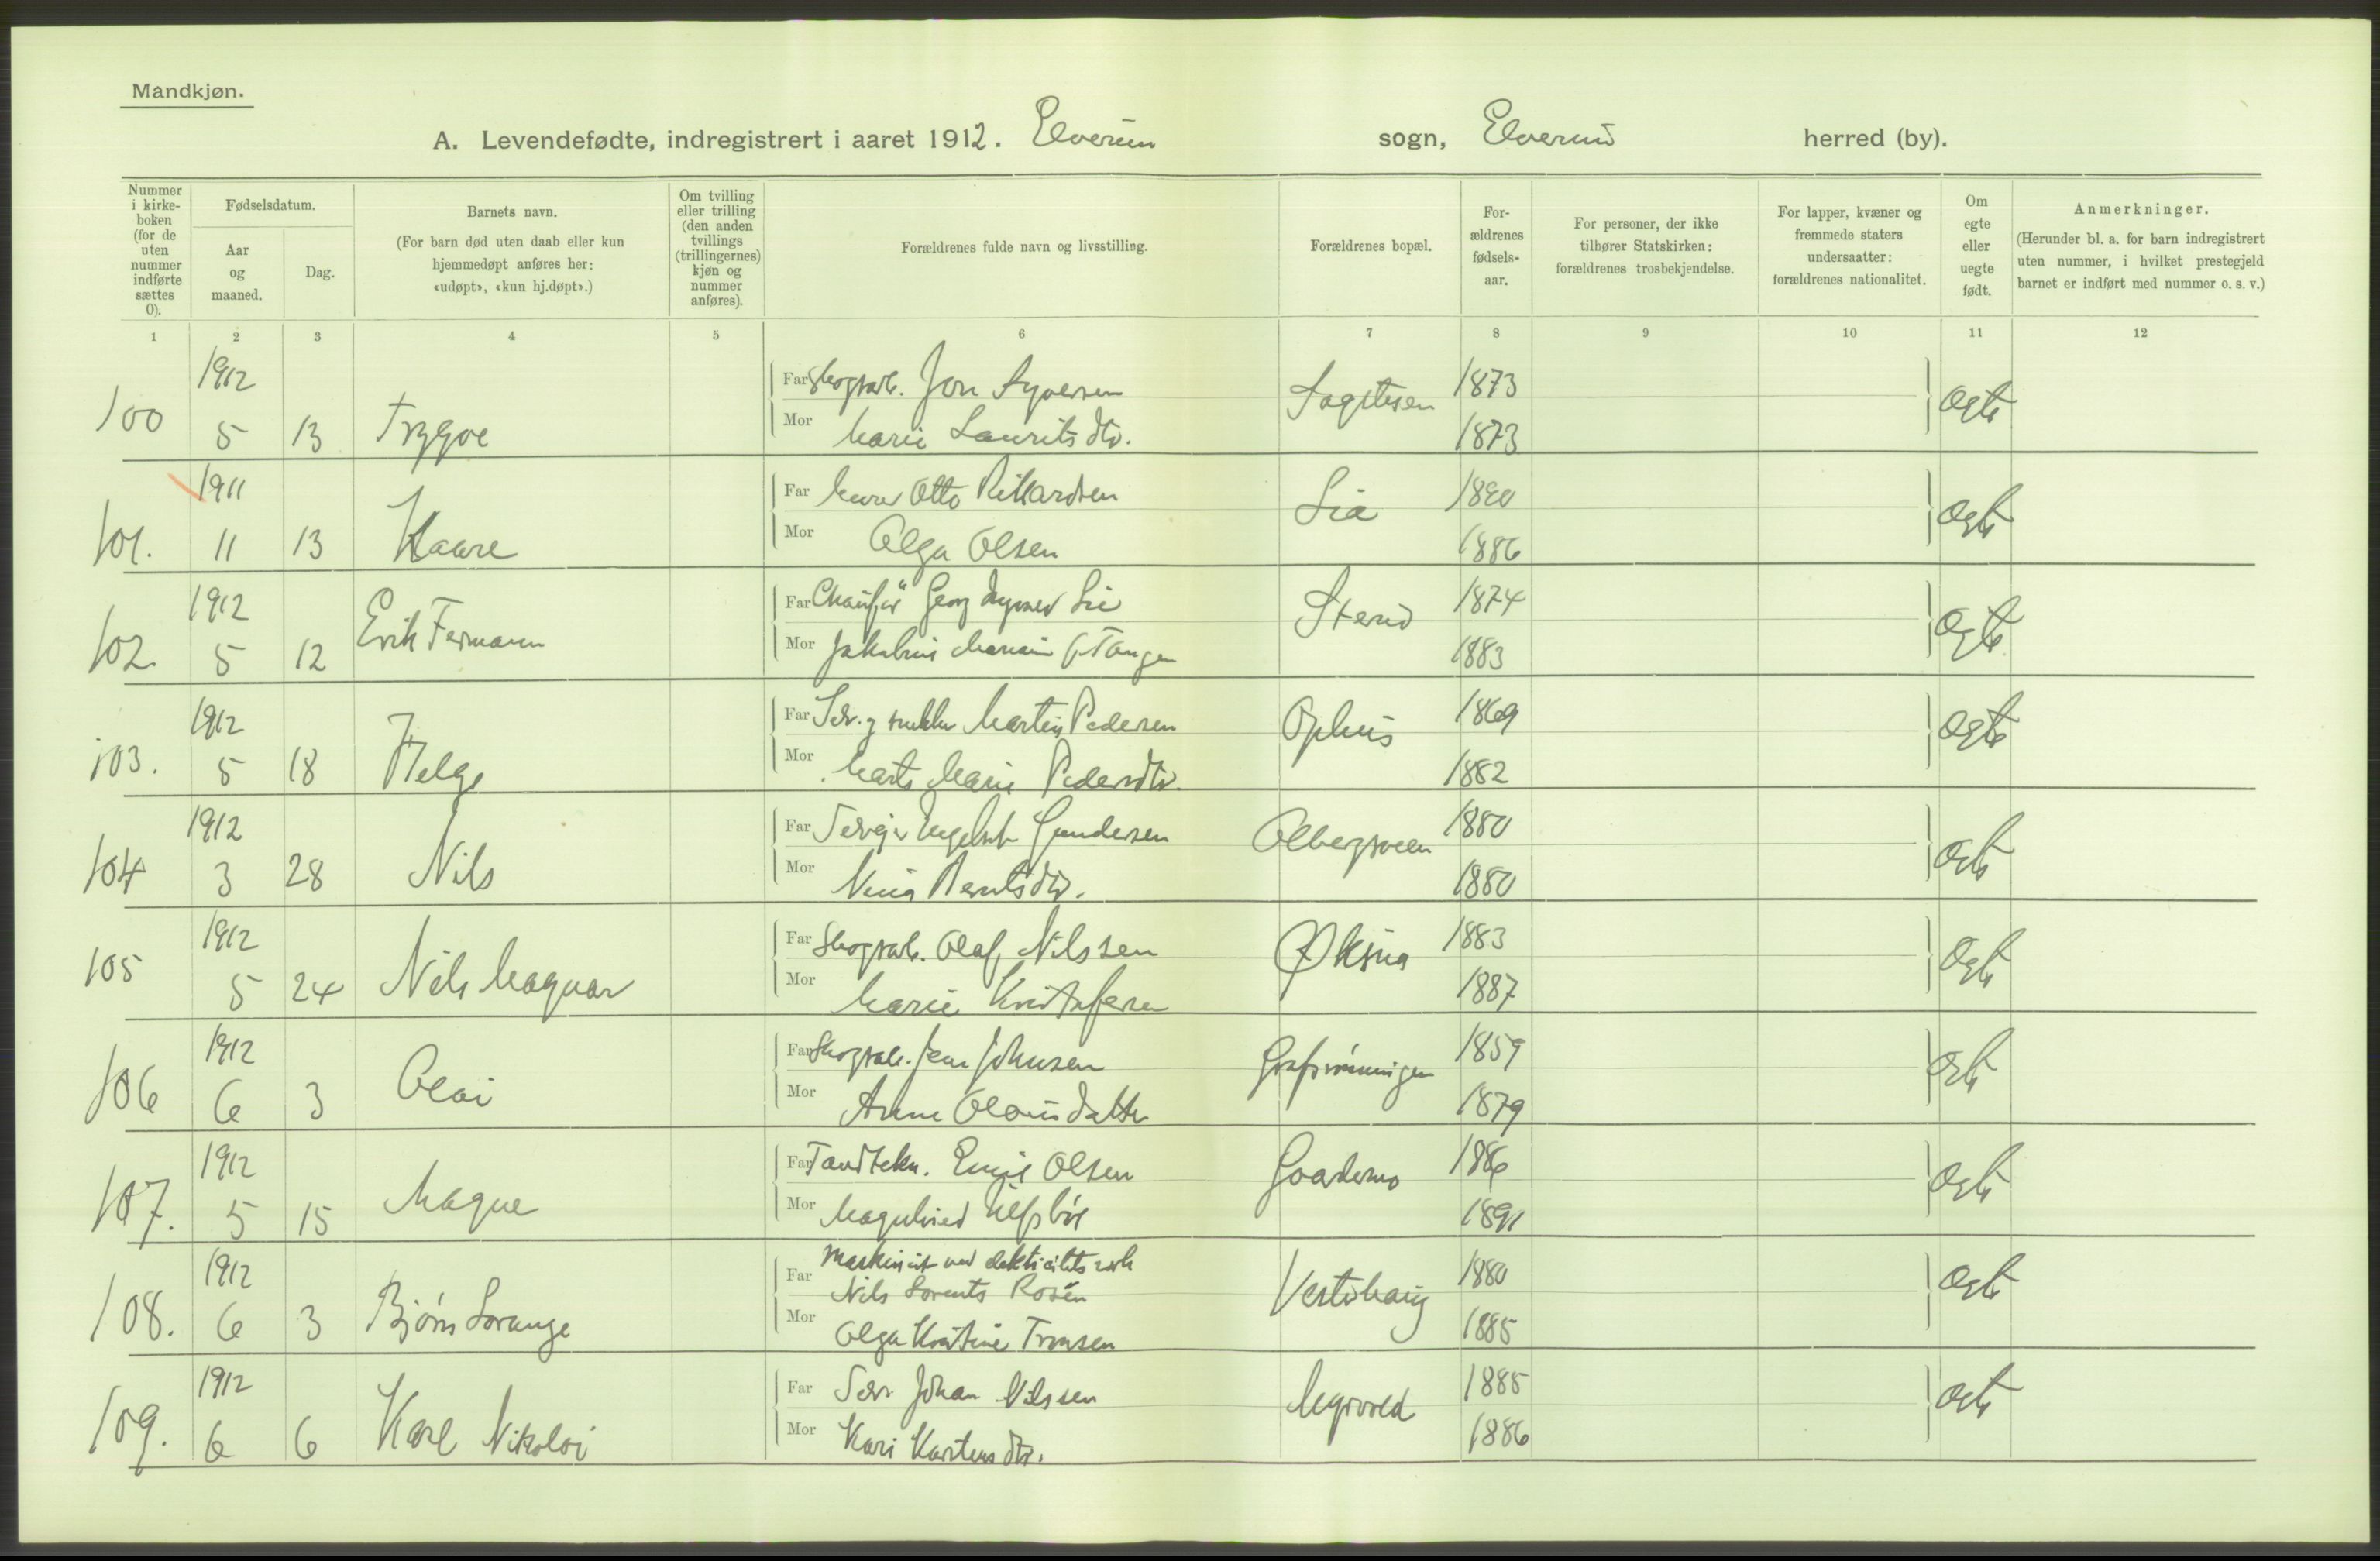 Mandkjøn.
A. Levendefødte, indregistrert i aaret 1912. Elverum sogn, Elverum herred (by).
Nummer i kirke-boken (for de uten nummer indførte sættes 0).
Fødselsdatum.
Aar og maaned.
Dag.
Barnets navn.
(For barn død uten daab eller kun hjemmedøpt anføres her: «udøpt», «kun hj.døpt».)
Om tvilling eller trilling (den anden tvillings (trillingernes) kjøn og nummer anføres).
Forældrenes fulde navn og livsstilling.
Forældrenes bopæl.
For-ældrenes fødsels-aar.
For personer, der ikke tilhører Statskirken: forældrenes trosbekjendelse.
For lapper, kvæner og fremmede staters undersaatter: forældrenes nationalitet.
Om egte eller uegte født.
Anmerkninger.
(Herunder bl. a. for barn indregistrert uten nummer, i hvilket prestegjeld barnet er indført med nummer o. s. v.)
1 2 3 4 5 6 7 8 9 10 11 12
1912 Far Skogsarb. Jon Syversen 1873
100 5 13 Trygve Mor Marie Lauritsdtr. 1873 egte
1911 Far Murer Otto Rikardsen Lia 1890
101. 11 13 Kaare Mor Olga Olsen 1886 egte
1912 Far Chaufør Georg Lie 1874
102. 5 12 Erik Fermann Mor Tangen 1883 egte
1912 Far Selv. og snekker Martin Pedersen Ophus 1869
103. 5 18 Helge Mor Marte Marie Pedersdtr. 1882 egte
1912 Far Selvejer Engebret Gundersen 1880
104 3 28 Nils Mor Berntsdtr. 1880 egte
1912 Far Skogsarb. Olaf Nilssen Øksna 1883
105 5 24 Nils Magnar Mor Marie Kristofersen 1887 egte
1912 Far Skogsarb. Jens Johnsen 1859
106 6 3 Olai Mor Anne Olausdatter 1879 egte
1912 Far Tandtekn. Olsen Gaardermo 1886
107. 5 15 Magne Mor 1891 egte
1912 Far Maskinist ved elektricitetsverk
Nils Lorents Rosén 1880
108. 6 3 Bjørn Lorange Mor Olga Kristine Tronsen Vestihaug 1885 egte
1912 Far Selv. Johan Nilssen 1885
109. 6 6 Karl Nikolai Mor Kari Karstensdtr. 1886 egte